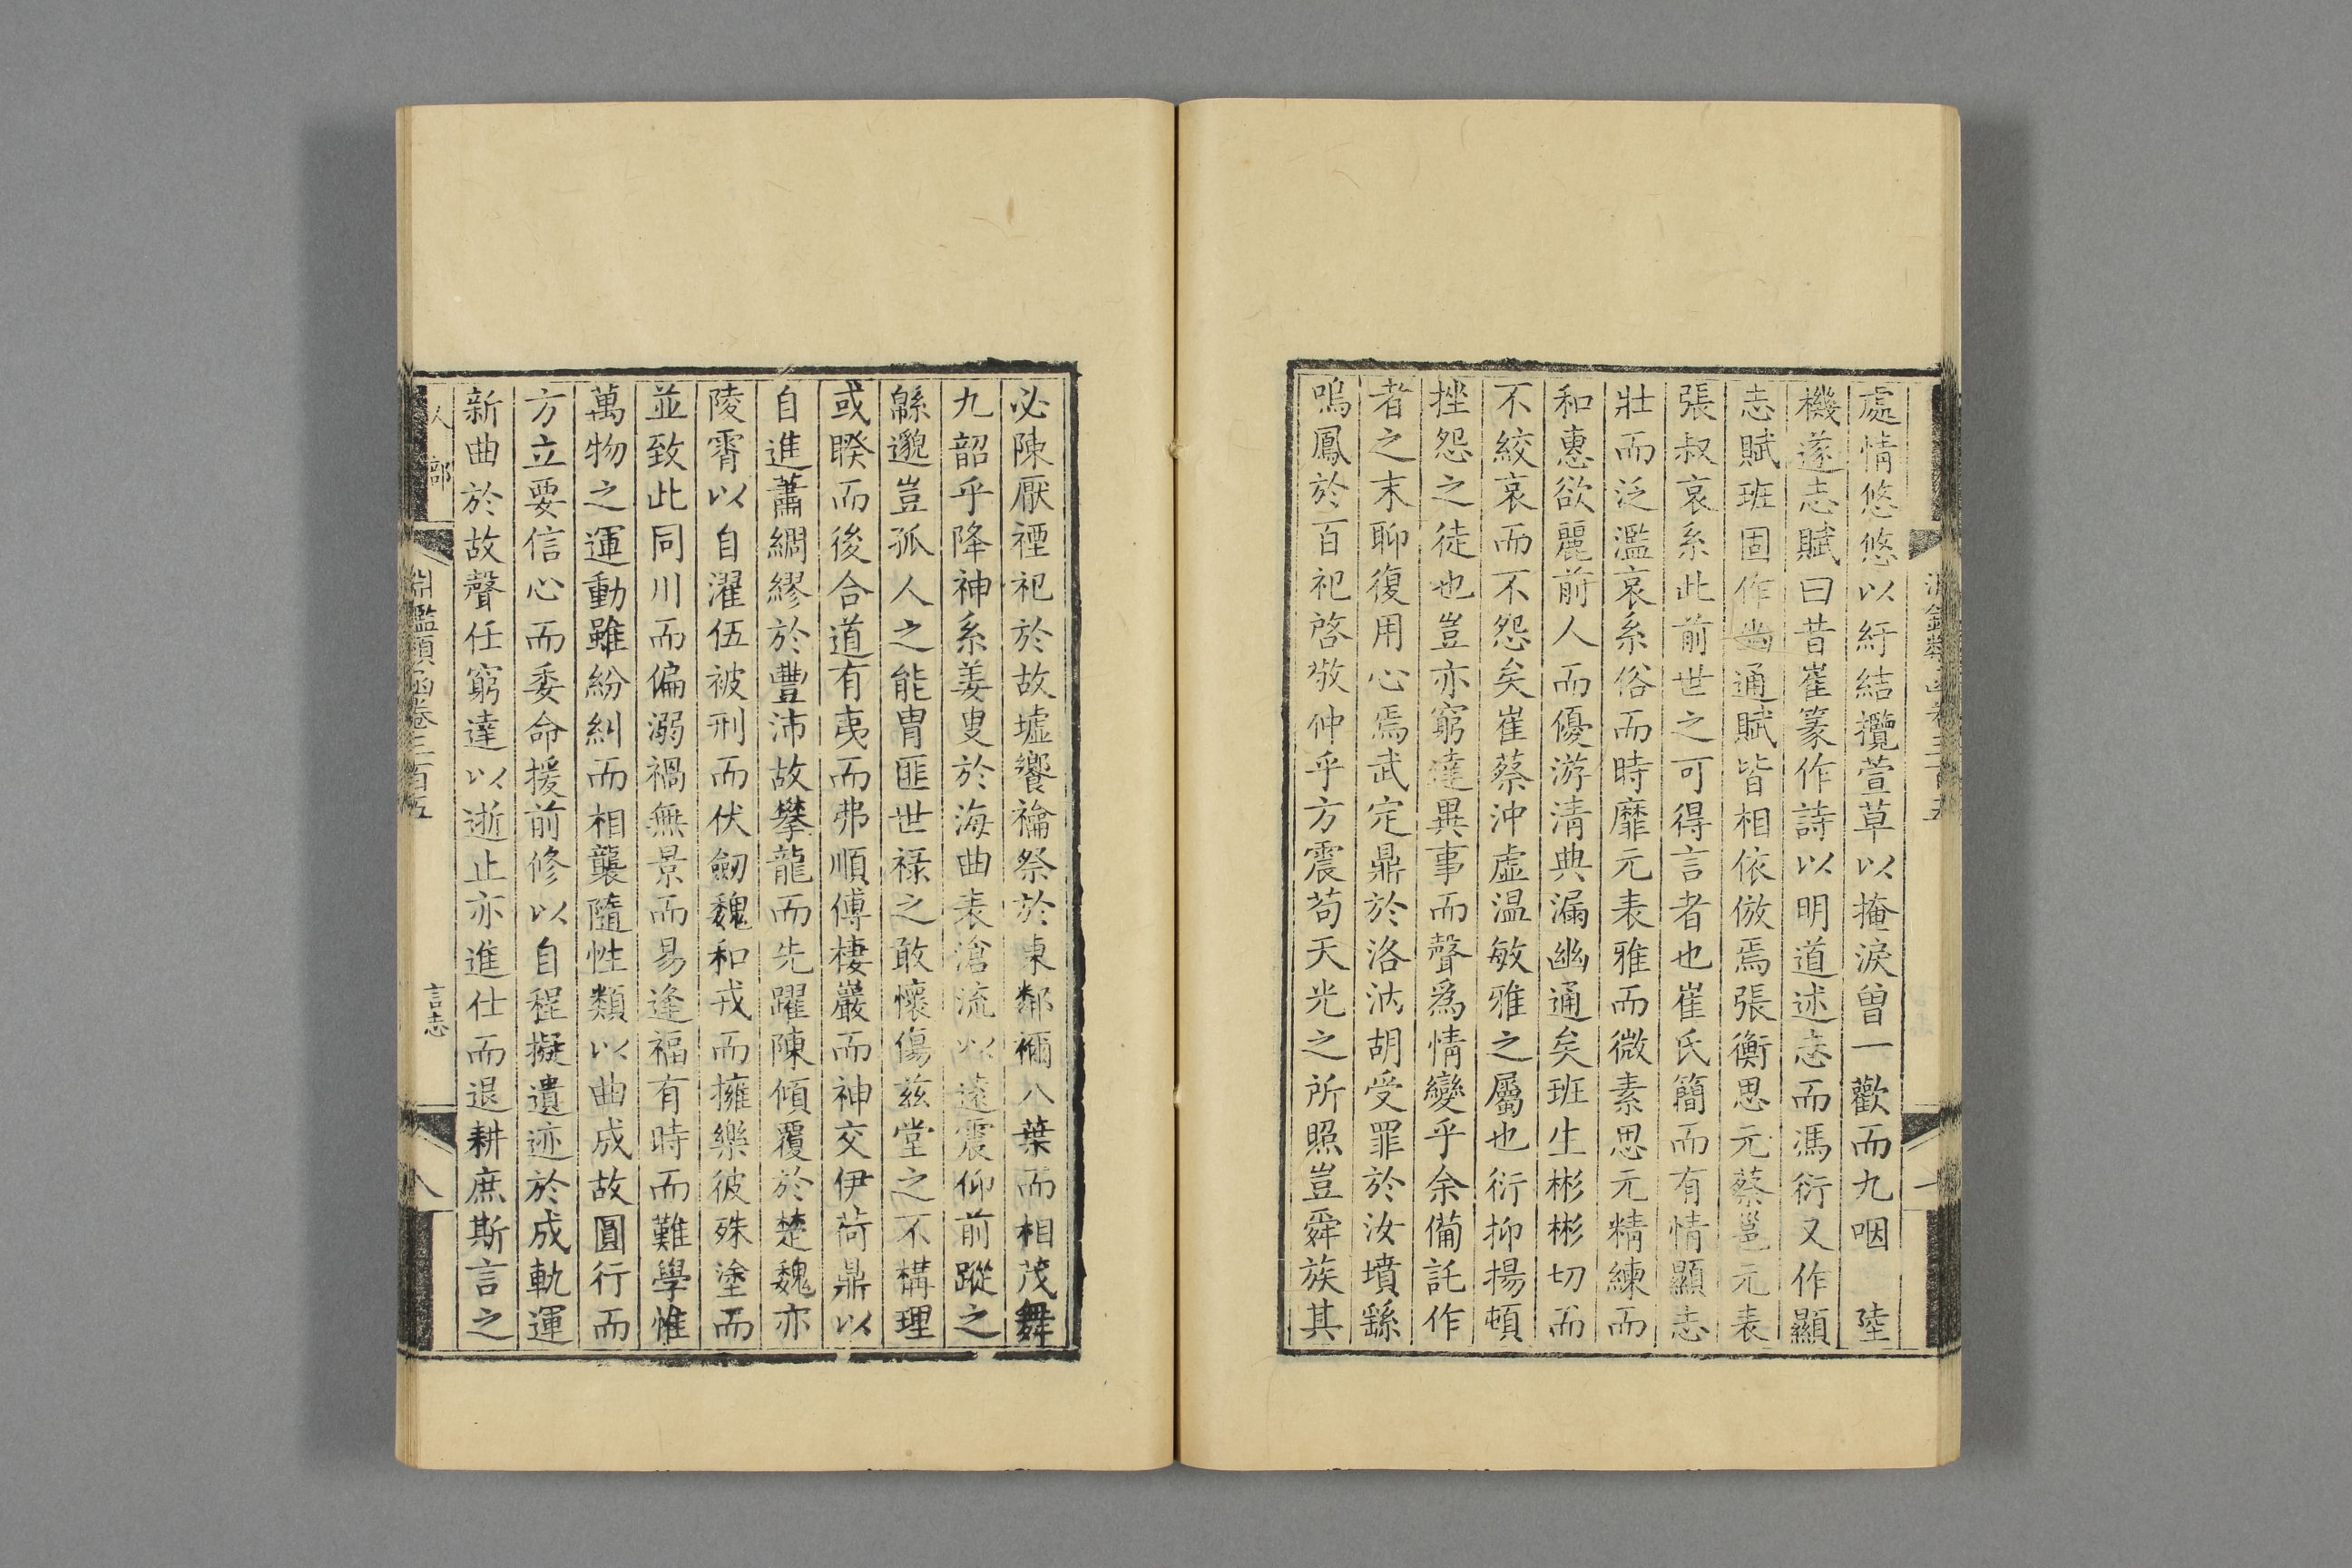 處情悠悠以紆結攬萱草以掩淚曾一歡而九咽　陸
機遂志賦曰昔崔篆作詩以明道述志而馮衍又作顯
志賦班固作幽通賦皆相依倣焉張衡思元蔡邕元表
張叔哀系此前世之可得言者也崔氏簡而有情顯志
壯而泛濫哀系俗而時靡元表雅而微素思元精練而
和惠欲麗前人而優游清典漏幽通矣班生彬彬切而
不絞哀而不怨矣崔蔡沖虛温敏雅之屬也衍抑揚頓
挫怨之徒也豈亦窮達異事而聲爲情變乎余備託作
者之末聊復用心焉武定鼎於洛汭胡受罪於汝墳繇
鳴鳳於百祀啓敬仲乎方震苟天光之所照豈舜族其
必陳厭禋祀於故墟饗禴祭於東鄰禰八葉而相茂舞
九韶乎降神系姜叟於海曲表滄流以遠震仰前蹤之
緜邈豈孤人之能冑匪世祿之敢懷傷茲堂之不構理
或睽而後合道有夷而弗順傅棲巖而神交伊荷鼎以
自進蕭綢繆於豐沛故攀龍而先躍陳傾覆於楚魏亦
陵霄以自濯伍被刑而伏劒魏和戎而擁樂彼殊塗而
並致此同川而偏溺禍無景而易逢福有時而難學惟
萬物之運動雖紛糾而相襲隨性類以曲成故圓行而
方立要信心而委命援前修以自程擬遺迹於成軌運
新曲於故聲任窮達以逝止亦進仕而退耕庶斯言之
人部
淵鑑類函卷三百五
言志
八